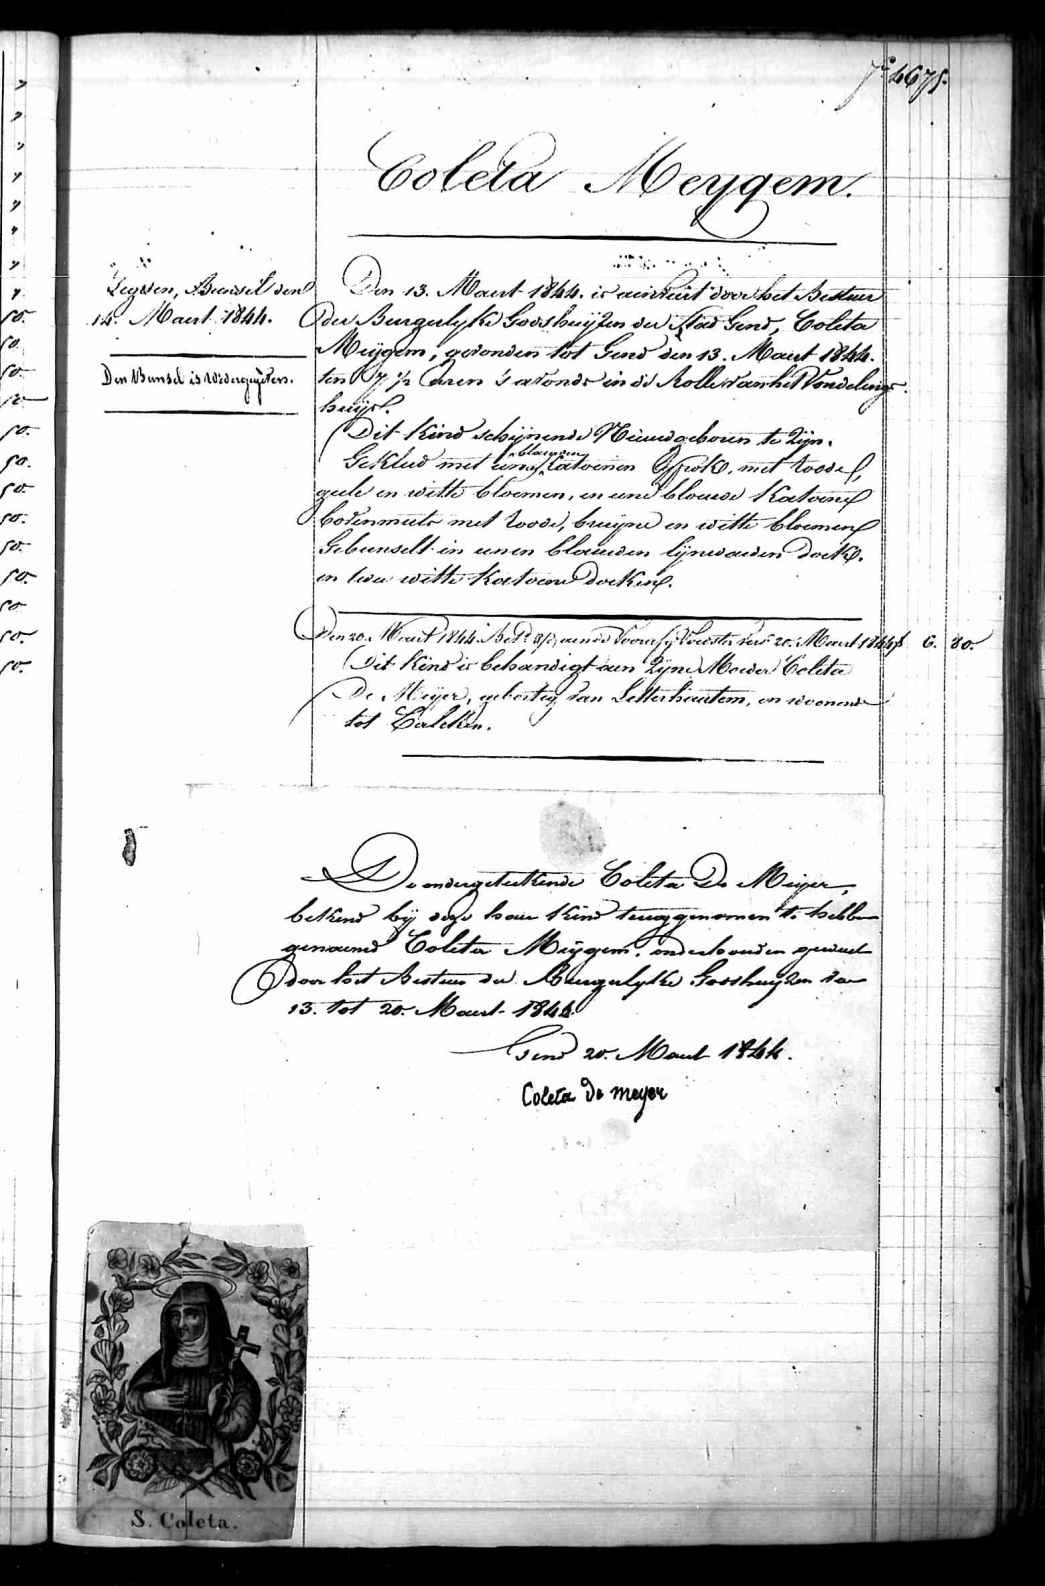 4675.
Coleta Meygem.
14. Maert 1844.
Den Bunsel is wedergegeven.
Den 13. Maert 1844. is aenveirt door het Bestuer
der Burgerlyke Godshuyzen der Stad Gend, Coleta
Meÿgem, gevonden tot Gend den 13. Maert 1844.
ten 7 ½ uren 's avonds in de Rolle van het Vondelings
huys.
Dit kind schijnende Nieuwgeboren te Zijn.
Gekleed met eenen blauwen Catoenen Frok, met roode,
geele en witte bloemen, en eene blauwe Katoene
bovenmuts met roode, bruyne en witte bloemen
Gebunselt in eenen blauwen lynwaden doek,
en twee witte katoene doeken.
Den 20. Maert 1844. 20. Maert 1844 6. 80.
Dit kind is behandigt aen Zyne Moeder Coleta
De Meÿer, geboortig van Letterhautem, en woonende
tot Calcken.
De ondergeteekende Coleta De Meijer,
bekend bÿ deze haer kind teruggenomen te hebben
genaemd Coleta Meÿgem, onderhouden geweest
door het Bestuer der Burgerlyke Godshuyzen van
13. tot 20. Maert 1844.
Gend 20. Maert 1844.
Coleta De meyer
S. Coleta.
50.
50.
50.
50.
50.
50.
50.
50.
50.
50.
50.
50.
50.